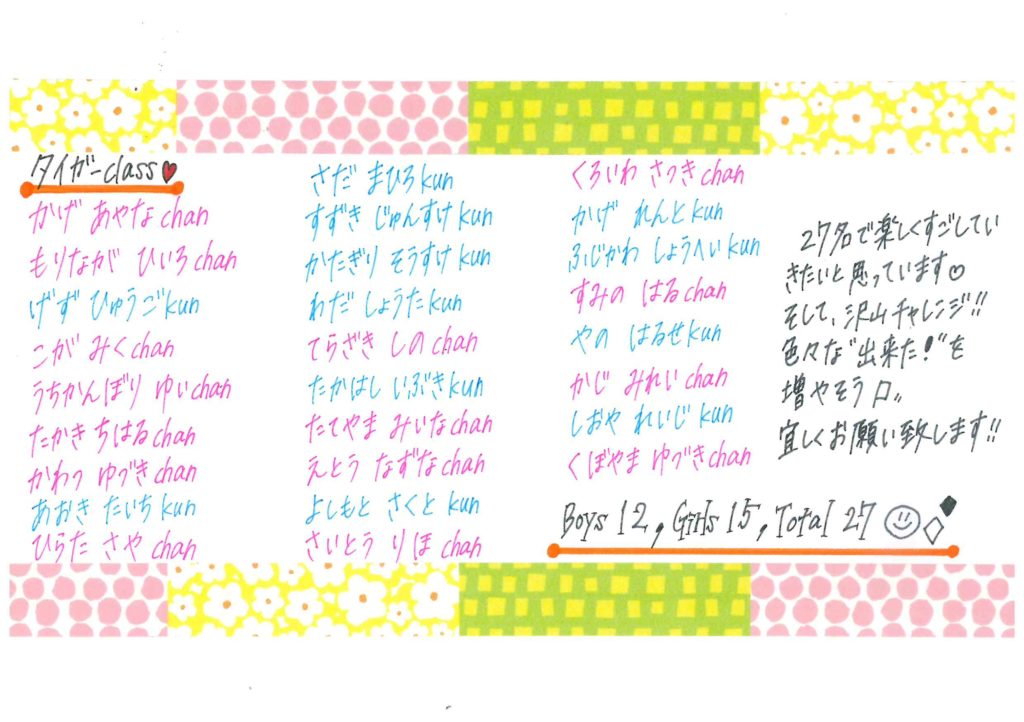 タイガーclass
かげ あやなchan
もりながが ひいろchan
げず ひゅうごkun
こが みくchan
うちかんぼり ゆいchan
たかき ちはるchan
かわっ ゆづきchan
あおき たいちkun
ひらた さやchan
さだ まひろkun
すずき じゅんすけkun
かたぎり そうすけkun
わだ しょうたkun
てらざき しのchan
たかはし いぶきkun
たてやま みいなchan
えとう なずなchan
よしもと さくとkun
さいとう りほchan
くろいわ さつきchan
かげ れんとkun
ふじかわ しょうへいkun
すみの はるchan
やの はるせkun
かじ みれいchan
しおや れいじkun
くぼやま ゆづきchan
27名で楽しくすごしてい
きたいと思っています♡
そして、沢山チャレンジ!!
色々な"出来た!"を
増やそう
宜しくお願い致します!!
Boys 12, Girls 15, Total 27